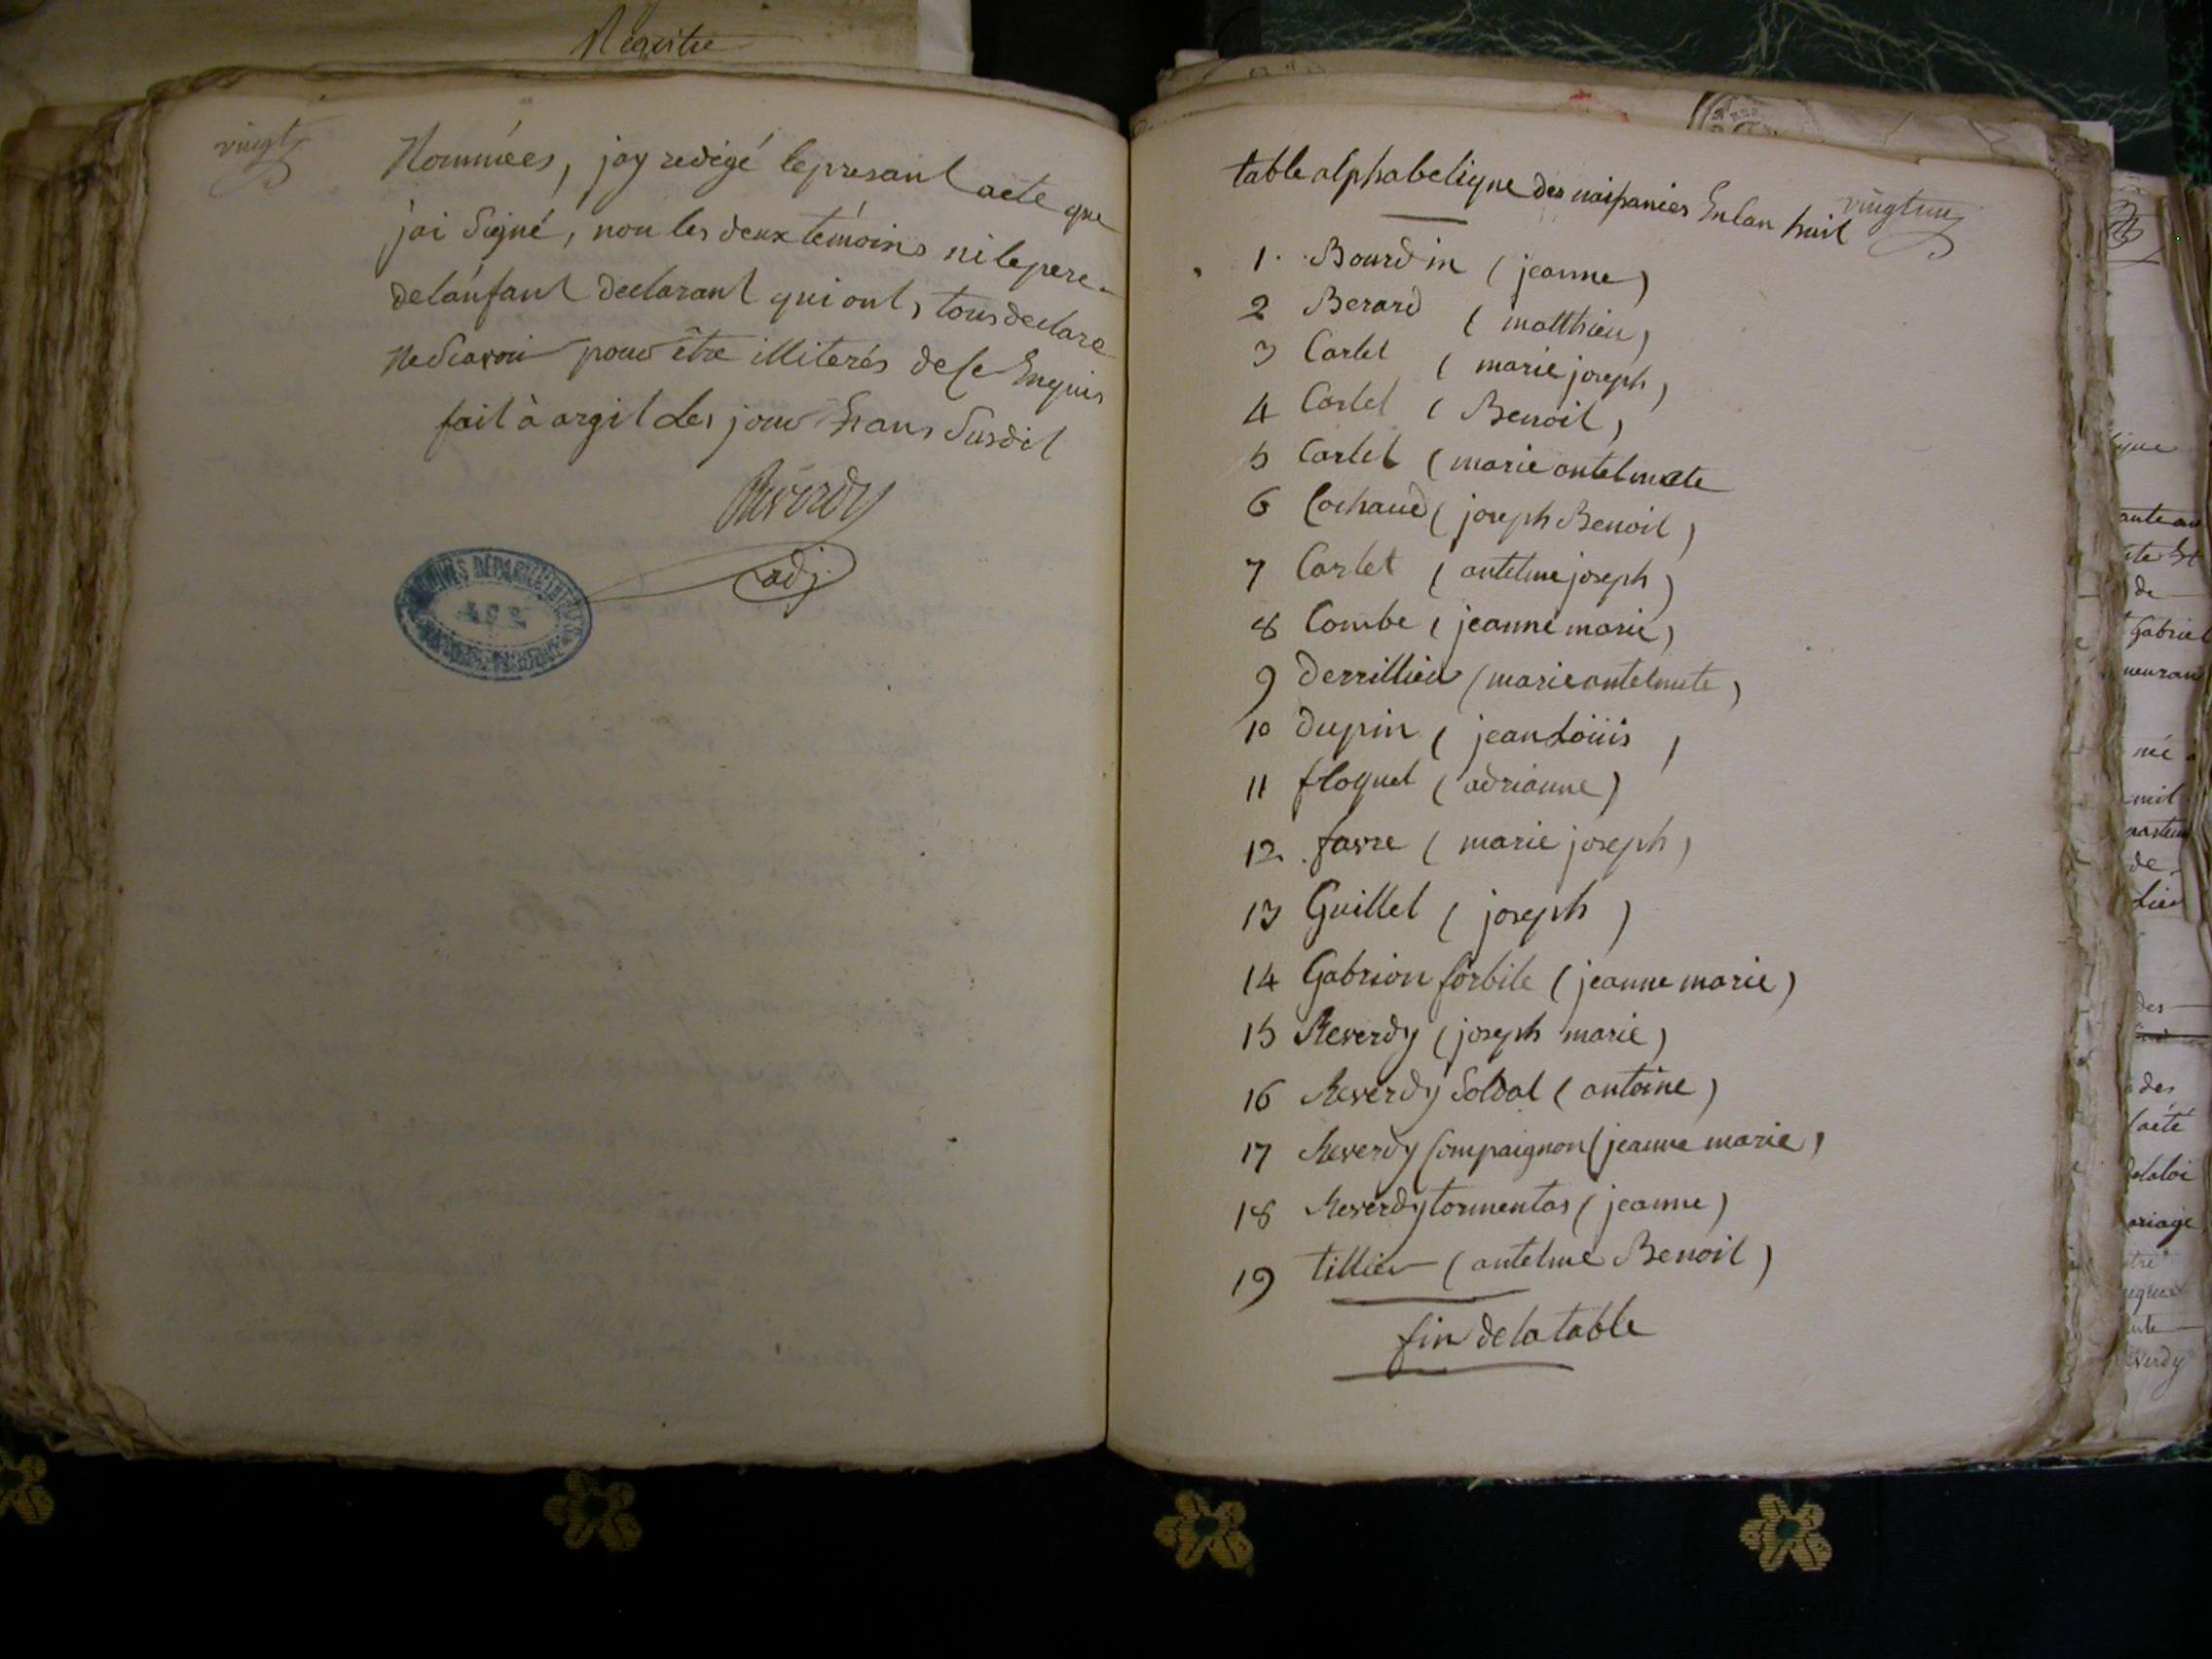 Registre
vingt
Nommées, jay redigé lepresant acte que
j'ai Signé, non les deux témoins ni lepere
delanfant declarant qui ont, tous declare
ne Scavoir pour être illiterés de ce Enquis
fait à argit Les jour Et ans Susdit
Reverdy
adj.
ARCHIVES DÉPARTEMENTALES
AIN
vingt un
table alphabetique des naissances En lan huit
1. Bourdin (jeanne)
2 Berard (matthieu)
3 Carlet (marie joseph)
4 Carlet (Benoit)
5 Carlet (marie antelmete
6 Cochaud (joseph Benoit)
7 Carlet (antelme joseph)
8 Combe (jeanne marie)
9 Derrillieu (marie antelmete)
10 Dupin (jean Loüis)
11 floquet (adrianne)
12 favre (marie joseph)
13 Guillet (joseph)
14 Gabrion forbite (jeanne marie)
15 Reverdy (joseph marie)
16 Reverdy Soldat (antoine)
17 Reverdy Compaignon (jeanne marie)
18 Reverdy tormentas (jeanne)
19 tillier (antelme Benoit)
fin de la table